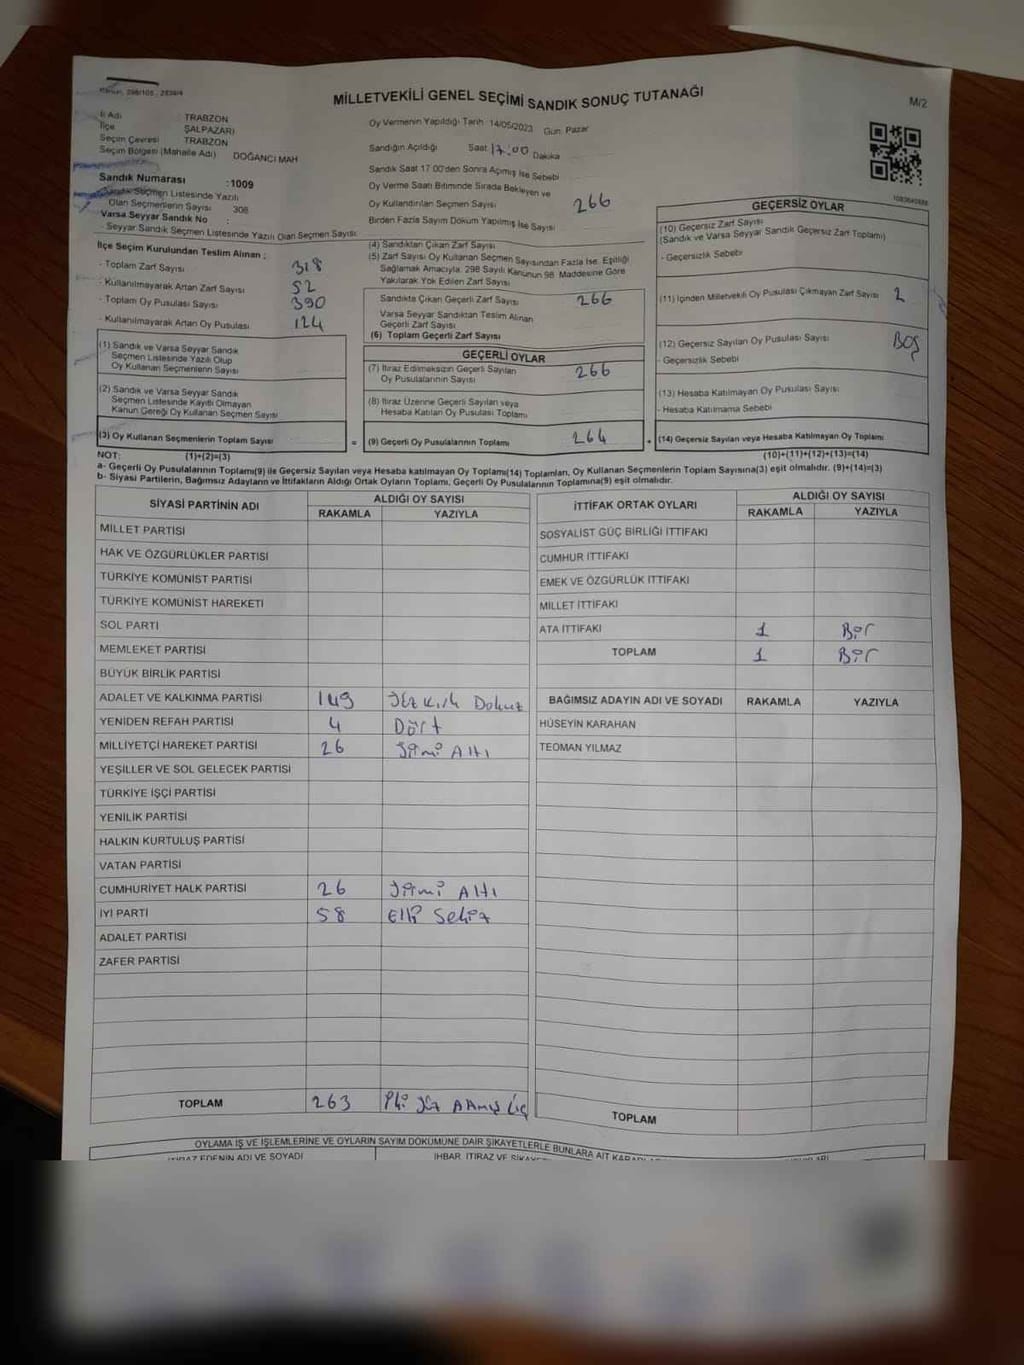 Kanun: 298/105 - 2839/4
MİLLETVEKİLİ GENEL SEÇİMİ SANDIK SONUÇ TUTANAĞI
M/2
İl Adı TRABZON
İlçe ŞALPAZARI
Seçim Çevresi TRABZON
Seçim Bölgesi (Mahalle Adı) DOĞANCI MAH
Sandık Numarası :1009
Sandık Seçmen Listesinde Yazılı
Olan Seçmenlerin Sayısı 308
Varsa Seyyar Sandık No :
- Seyyar Sandık Seçmen Listesinde Yazılı Olan Seçmen Sayısı:
Oy Vermenin Yapıldığı Tarih: 14/05/2023 Gün: Pazar
Sandığın Açıldığı Saat 17:00 Dakika
Sandık Saat 17.00'den Sonra Açılmış İse Sebebi
Oy Verme Saati Bitiminde Sırada Bekleyen ve
Oy Kullandırılan Seçmen Sayısı 266
Birden Fazla Sayım Döküm Yapılmış İse Sayısı
İlçe Seçim Kurulundan Teslim Alınan ;
- Toplam Zarf Sayısı 318
- Kullanılmayarak Artan Zarf Sayısı 52
- Toplam Oy Pusulası Sayısı 390
- Kullanılmayarak Artan Oy Pusulası 124
(1) Sandık ve Varsa Seyyar Sandık
Seçmen Listesinde Yazılı Olup
Oy Kullanan Seçmenlerin Sayısı
(2) Sandık ve Varsa Seyyar Sandık
Seçmen Listesinde Kayıtlı Olmayan
Kanun Gereği Oy Kullanan Seçmen Sayısı
(3) Oy Kullanan Seçmenlerin Toplam Sayısı
(4) Sandıktan Çıkan Zarf Sayısı
(5) Zarf Sayısı Oy Kullanan Seçmen Sayısından Fazla İse, Eşitliği
Sağlamak Amacıyla, 298 Sayılı Kanunun 98. Maddesine Göre
Yakılarak Yok Edilen Zarf Sayısı
Sandıkta Çıkan Geçerli Zarf Sayısı 266
Varsa Seyyar Sandıktan Teslim Alınan
Geçerli Zarf Sayısı
(6) Toplam Geçerli Zarf Sayısı
GEÇERLİ OYLAR
(7) İtiraz Edilmeksizin Geçerli Sayılan
Oy Pusulalarının Sayısı 266
(8) İtiraz Üzerine Geçerli Sayılan veya
Hesaba Katılan Oy Pusulası Toplamı
= (9) Geçerli Oy Pusulalarının Toplamı 264
GEÇERSİZ OYLAR
(10) Geçersiz Zarf Sayısı
(Sandık ve Varsa Seyyar Sandık Geçersiz Zarf Toplamı)
- Geçersizlik Sebebi
(11) İçinden Milletvekili Oy Pusulası Çıkmayan Zarf Sayısı 2
(12) Geçersiz Sayılan Oy Pusulası Sayısı Boş
- Geçersizlik Sebebi
(13) Hesaba Katılmayan Oy Pusulası Sayısı
- Hesaba Katılmama Sebebi
(14) Geçersiz Sayılan veya Hesaba Katılmayan Oy Toplamı
NOT: (1)+(2)=(3)
(10)+(11)+(12)+(13)=(14)
a- Geçerli Oy Pusulalarının Toplamı(9) ile Geçersiz Sayılan veya Hesaba katılmayan Oy Toplamı(14) Toplamları, Oy Kullanan Seçmenlerin Toplam Sayısına(3) eşit olmalıdır. (9)+(14)=(3)
b- Siyasi Partilerin, Bağımsız Adayların ve İttifakların Aldığı Ortak Oyların Toplamı, Geçerli Oy Pusulalarının Toplamına(9) eşit olmalıdır.
SİYASİ PARTİNİN ADI ALDIĞI OY SAYISI
RAKAMLA YAZIYLA
MİLLET PARTİSİ
HAK VE ÖZGÜRLÜKLER PARTİSİ
TÜRKİYE KOMÜNİST PARTİSİ
TÜRKİYE KOMÜNİST HAREKETİ
SOL PARTİ
MEMLEKET PARTİSİ
BÜYÜK BİRLİK PARTİSİ
ADALET VE KALKINMA PARTİSİ 149 Yüz Kırk Dokuz
YENİDEN REFAH PARTİSİ 4 Dört
MİLLİYETÇİ HAREKET PARTİSİ 26 Yirmi Altı
YEŞİLLER VE SOL GELECEK PARTİSİ
TÜRKİYE İŞÇİ PARTİSİ
YENİLİK PARTİSİ
HALKIN KURTULUŞ PARTİSİ
VATAN PARTİSİ
CUMHURİYET HALK PARTİSİ 26 Yirmi Altı
İYİ PARTİ 58 Elli Sekiz
ADALET PARTİSİ
ZAFER PARTİSİ
TOPLAM 263 İki Yüz Altmış Üç
İTTİFAK ORTAK OYLARI ALDIĞI OY SAYISI
RAKAMLA YAZIYLA
SOSYALİST GÜÇ BİRLİĞİ İTTİFAKI
CUMHUR İTTİFAKI
EMEK VE ÖZGÜRLÜK İTTİFAKI
MİLLET İTTİFAKI
ATA İTTİFAKI 1 Bir
TOPLAM 1 Bir
BAĞIMSIZ ADAYIN ADI VE SOYADI RAKAMLA YAZIYLA
HÜSEYİN KARAHAN
TEOMAN YILMAZ
TOPLAM
OYLAMA İŞ VE İŞLEMLERİNE VE OYLARIN SAYIM DÖKÜMÜNE DAİR ŞİKAYETLERLE BUNLARA AİT
İTİRAZ EDENİN ADI VE SOYADI